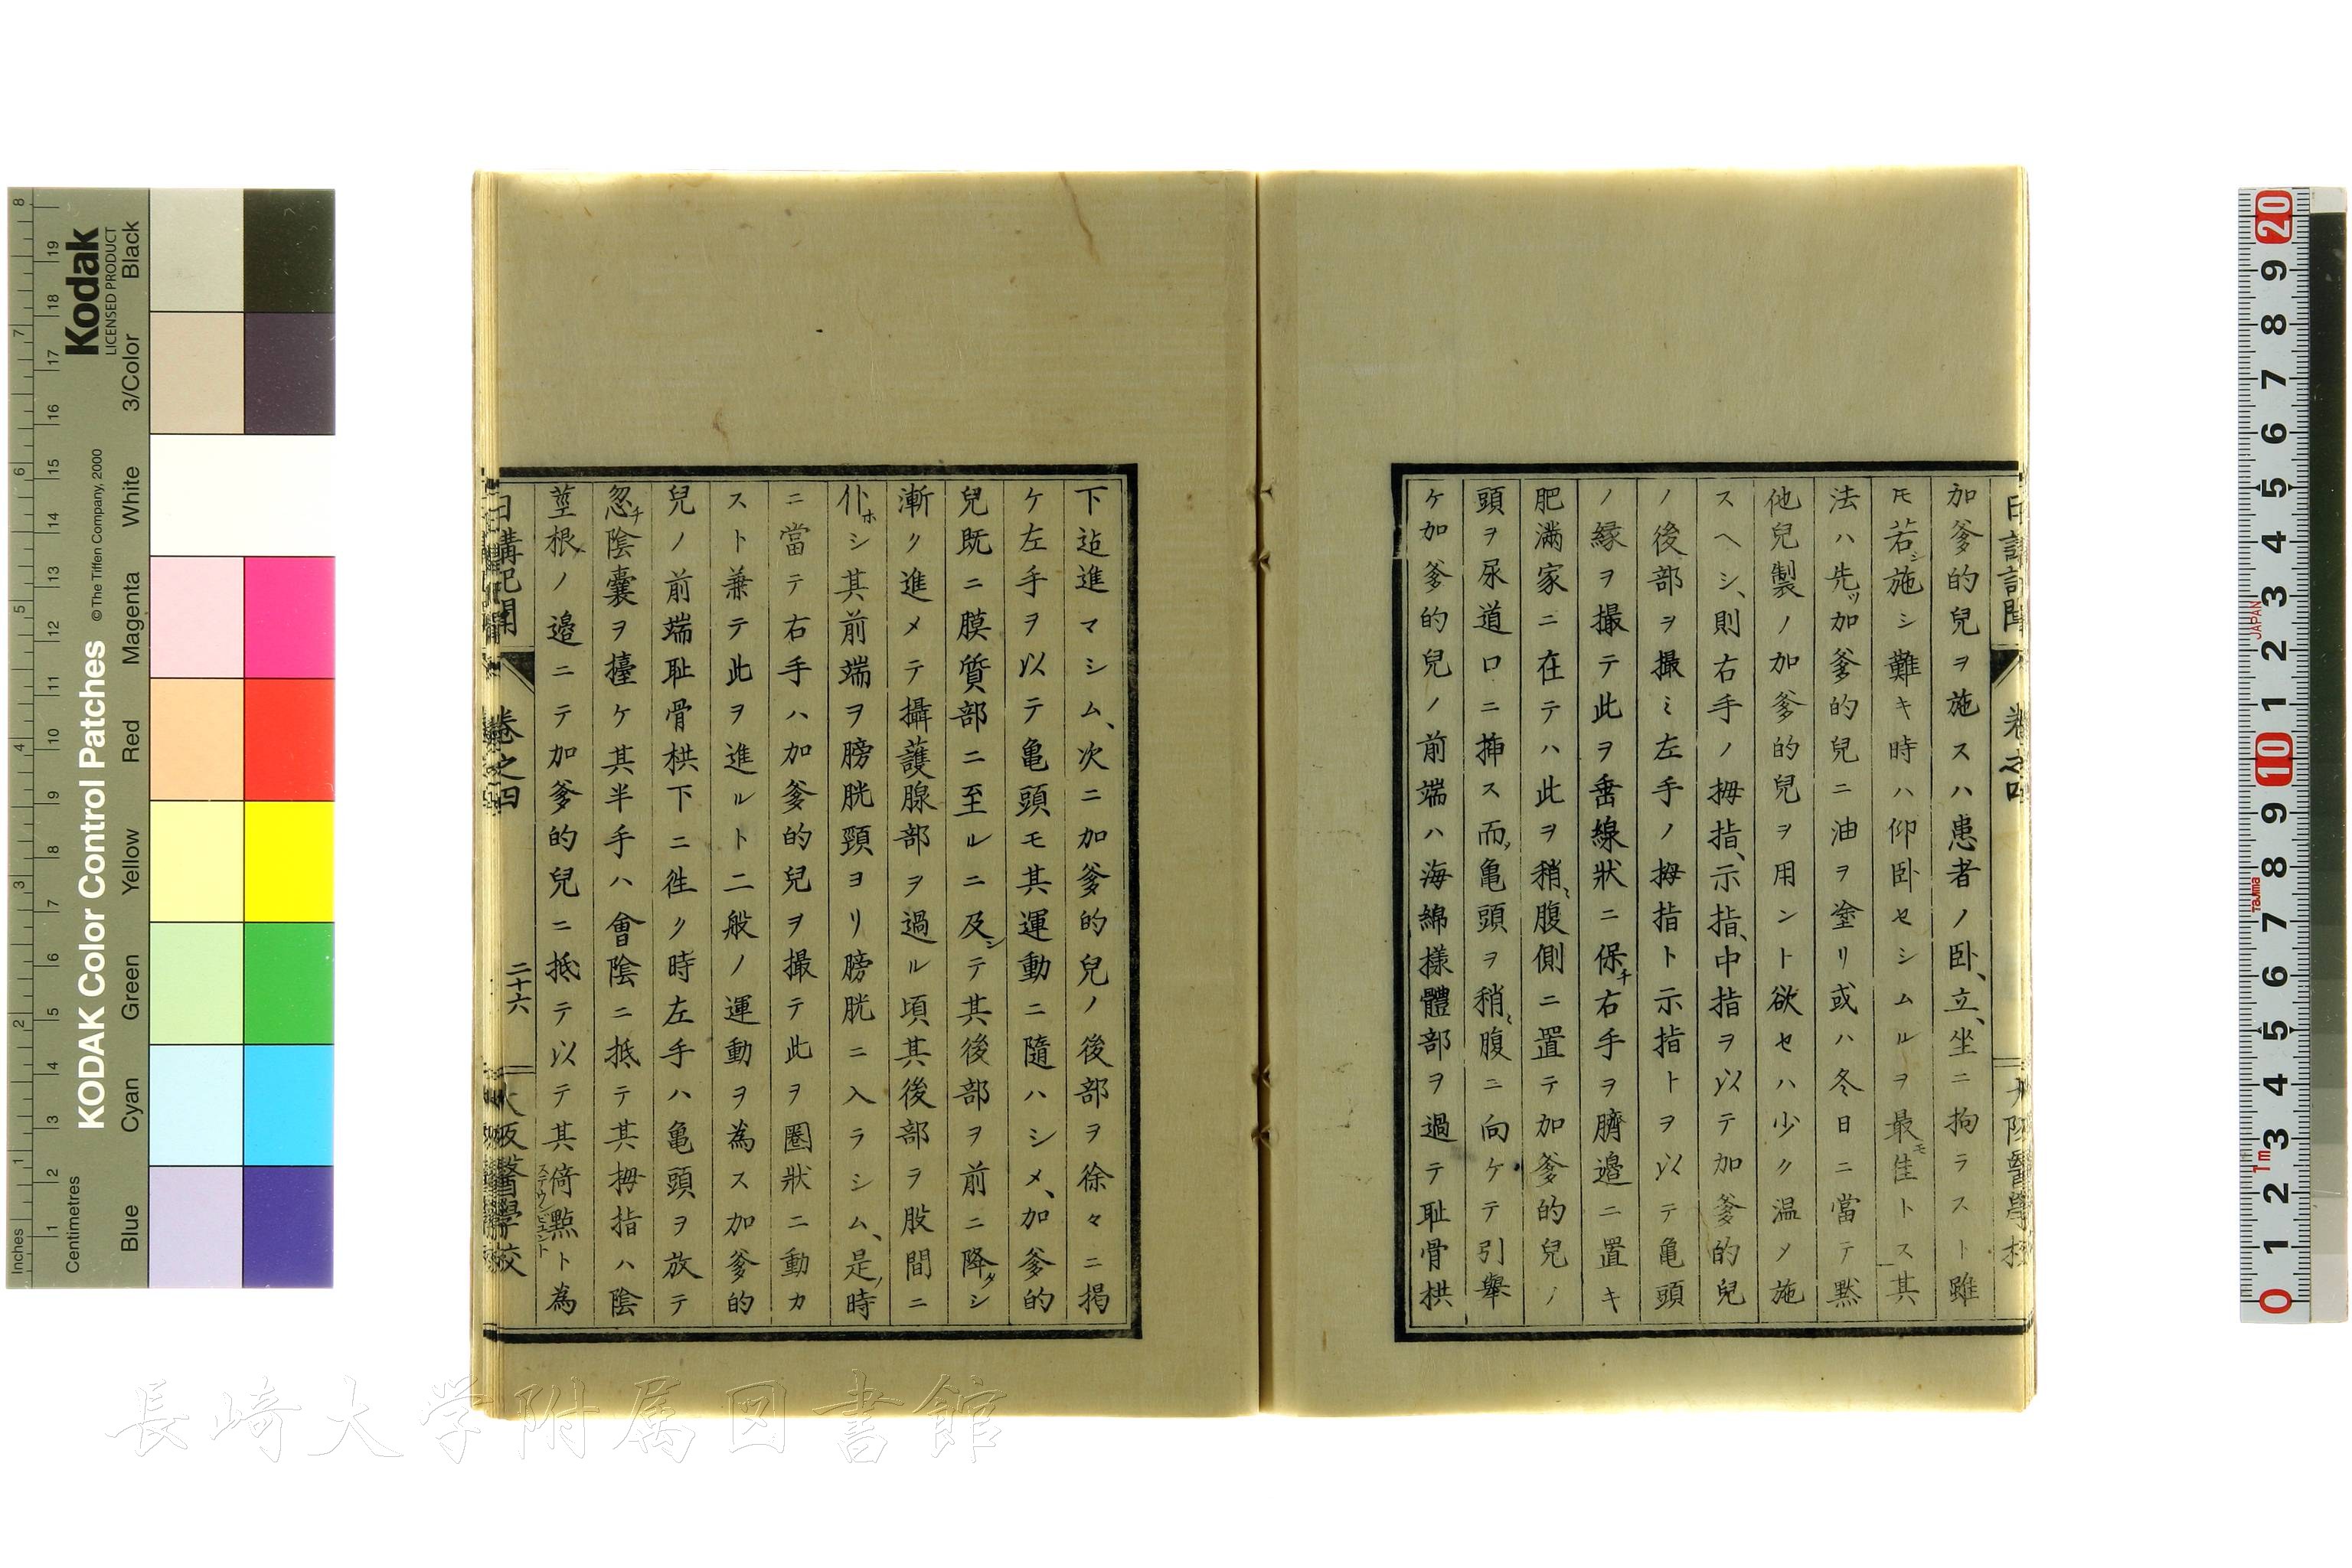 加爹的兒ヲ施スハ患者ノ卧、立、坐ニ拘ラスト雖
モ若シ施シ難キ時ハ仰卧セシムルヲ最モ佳トス其
法ハ先ツ加爹的兒ニ油ヲ塗リ或ハ冬日ニ當テ黙
他兒製ノ加爹的兒ヲ用ント欲セハ少ク温メ施
スヘシ、則右手ノ拇指、示指、中指ヲ以テ加爹的兒
ノ後部ヲ撮ミ左手ノ拇指ト示指トヲ以テ亀頭
ノ縁ヲ撮テ此ヲ垂線狀ニ保チ右手ヲ臍邉ニ置キ
肥滿家ニ在テハ此ヲ稍ミ腹側ニ置テ加爹的兒ノ
頭ヲ尿道口ニ挿ス而亀頭ヲ稍ミ腹ニ向ケテ引舉
ケ加爹的兒ノ前端ハ海綿樣體部ヲ過テ耻骨栱
日講記聞 卷之四 大阪醫學校
下迠進マシム、次ニ加爹的兒ノ後部ヲ徐々ニ掲
ケ左手ヲ以テ亀頭モ其運動ニ隨ハシメ、加爹的
兒既ニ膜質部ニ至ルニ及シテ其後部ヲ前ニ降タシ
漸ク進メテ攝護腺部ヲ過ル頃其後部ヲ股間ニ
仆ホシ其前端ヲ膀胱頸ヨリ膀胱ニ入ラシム、是ノ時
ニ當テ右手ハ加爹的兒ヲ撮テ此ヲ圏狀ニ動カ
スト兼テ此ヲ進ルト二般ノ運動ヲ為ス加爹的
兒ノ前端耻骨栱下ニ徃ク時左手ハ亀頭ヲ放テ
忽チ陰嚢ヲ擡ケ其半手ハ會陰ニ抵テ其拇指ハ陰
莖根ノ邉ニテ加爹的兒ニ抵テ以テ其倚點ト為
日講記聞 卷之四 二十六 大阪醫學校
Kodak
LICENSED PRODUCT
KODAK Color Control Patches
© The Tiffen Company, 2000
Blue Cyan Green Yellow Red Magenta White 3/Color Black
Inches 1 2 3 4 5 6 7 8
Centimetres 1 2 3 4 5 6 7 8 9 10 11 12 13 14 15 16 17 18 19
0 1 2 3 4 5 6 7 8 9 10 1 2 3 4 5 6 7 8 9 20
1m Tajima JAPAN
長崎大学附属図書館